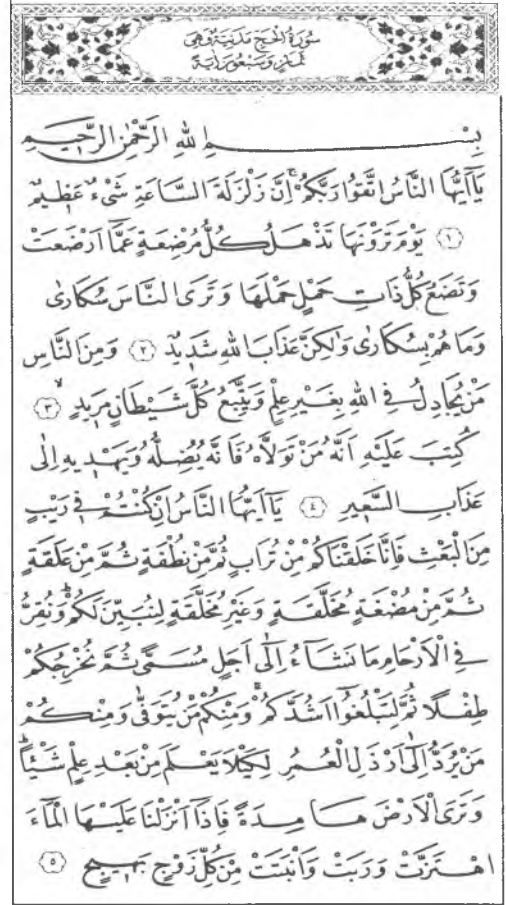 سُورَةُ الْحَجِّ مَدَنِيَّةٌ وَهِيَ
ثَمَانٍ وَسَبْعُونَ اٰيَةً
بِسْمِ اللهِ الرَّحْمٰنِ الرَّحِيمِ
يَآ اَيُّهَا النَّاسُ اتَّقُوا رَبَّكُمْۚ اِنَّ زَلْزَلَةَ السَّاعَةِ شَيْءٌ عَظِيمٌ
﴿١﴾ يَوْمَ تَرَوْنَهَا تَذْهَلُ كُلُّ مُرْضِعَةٍ عَمَّا اَرْضَعَتْ
وَتَضَعُ كُلُّ ذَاتِ حَمْلٍ حَمْلَهَا وَتَرَى النَّاسَ سُكَارٰى
وَمَا هُمْ بِسُكَارٰى وَلٰكِنَّ عَذَابَ اللهِ شَدِيدٌ ﴿٢﴾ وَمِنَ النَّاسِ
مَنْ يُجَادِلُ فِي اللهِ بِغَيْرِ عِلْمٍ وَيَتَّبِعُ كُلَّ شَيْطَانٍ مَرِيدٍۙ ﴿٣﴾
كُتِبَ عَلَيْهِ اَنَّهُ مَنْ تَوَلَّاهُ فَاَنَّهُ يُضِلُّهُ وَيَهْدِيهِ اِلٰى
عَذَابِ السَّعِيرِ ﴿٤﴾ يَآ اَيُّهَا النَّاسُ اِنْ كُنْتُمْ فِي رَيْبٍ
مِنَ الْبَعْثِ فَاِنَّا خَلَقْنَاكُمْ مِنْ تُرَابٍ ثُمَّ مِنْ نُطْفَةٍ ثُمَّ مِنْ عَلَقَةٍ
ثُمَّ مِنْ مُضْغَةٍ مُخَلَّقَةٍ وَغَيْرِ مُخَلَّقَةٍ لِنُبَيِّنَ لَكُمْۜ وَنُقِرُّ
فِي الْاَرْحَامِ مَا نَشَآءُ اِلٰٓى اَجَلٍ مُسَمًّى ثُمَّ نُخْرِجُكُمْ
طِفْلًا ثُمَّ لِتَبْلُغُٓوا اَشُدَّكُمْۚ وَمِنْكُمْ مَنْ يُتَوَفّٰى وَمِنْكُمْ
مَنْ يُرَدُّ اِلٰٓى اَرْذَلِ الْعُمُرِ لِكَيْلَا يَعْلَمَ مِنْ بَعْدِ عِلْمٍ شَيْـًٔاۜ
وَتَرَى الْاَرْضَ هَامِدَةً فَاِذَآ اَنْزَلْنَا عَلَيْهَا الْمَآءَ
اهْتَزَّتْ وَرَبَتْ وَاَنْبَتَتْ مِنْ كُلِّ زَوْجٍ بَهِيجٍ ﴿٥﴾